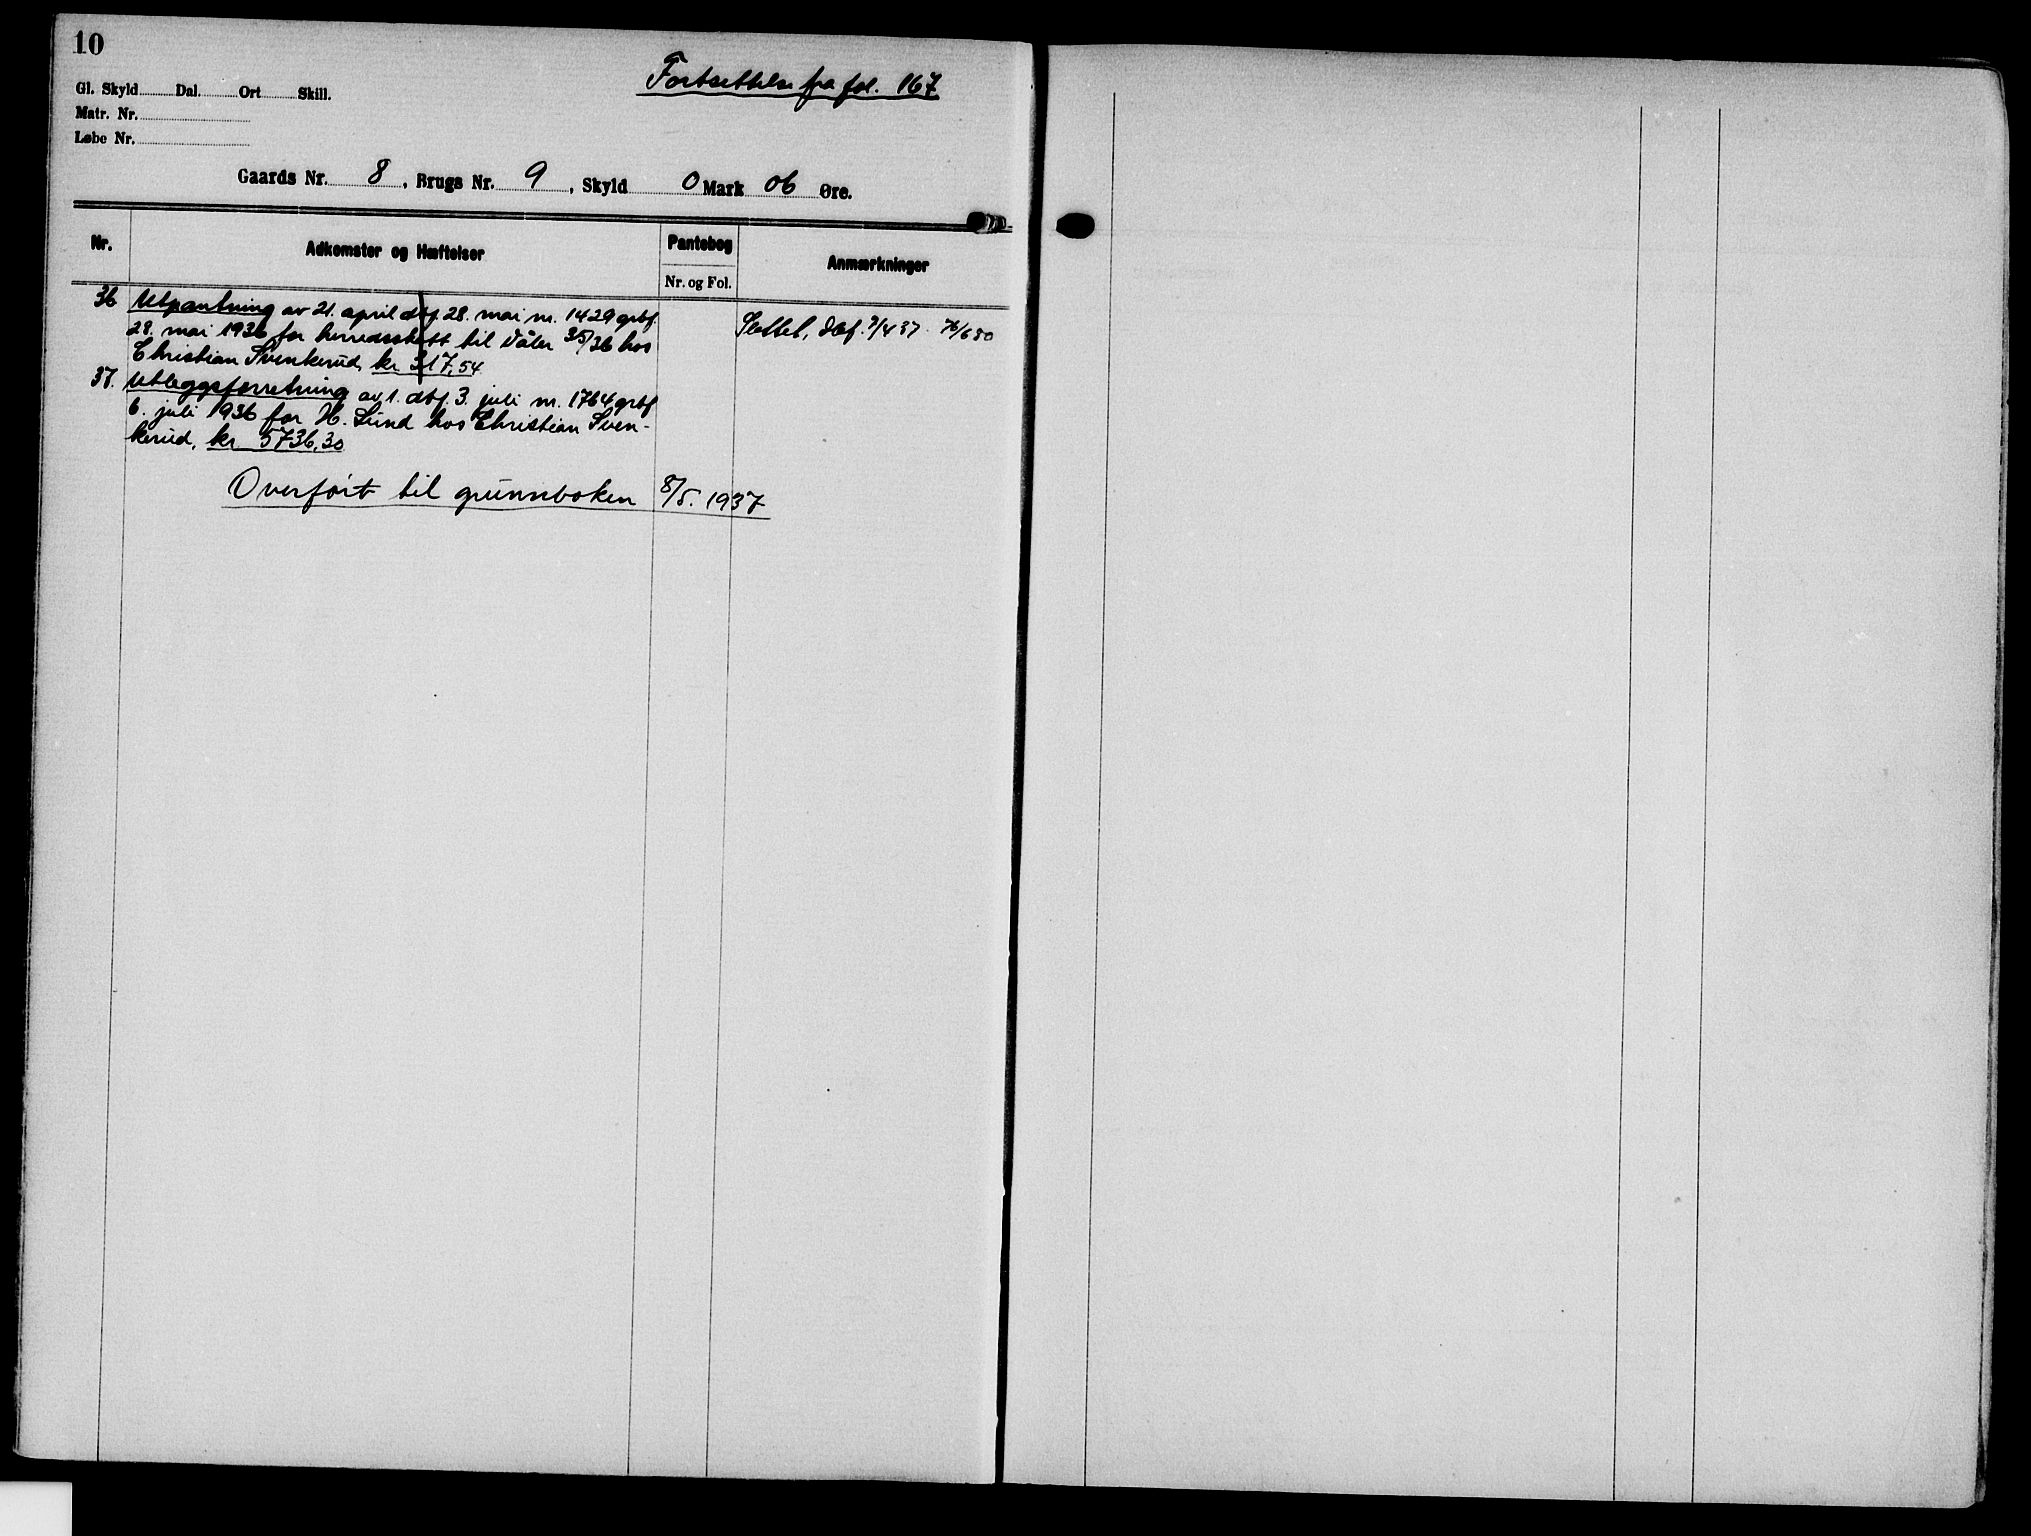 10
Fortsettelse fra fol. 167
Gl. Skyld Dal. Ort Skill.
Matr. Nr.
Løbe Nr.
Gaards Nr. 8, Brugs Nr. 9, Skyld 0 Mark 06 Øre.
Nr. Adkomster og Hæftelser Pantebog Anmærkninger
Nr. og Fol.
36 Utpantning av 21. april dbf. 28. mai nr. 1429 grbf.
28. mai 1936 for herredsskatt til Våler 35/36 hos
Christian Svenkerud, kr 317,54
Slettet, dbf. 7/4 37. 76/680
37. Utleggsforretning av 1. dbf. 3. juli nr. 1764 grbf
6. juli 1936 for H. Lund hos Christian Sven-
kerud, kr 5736,30
Overført til grunnboken 8/5. 1937